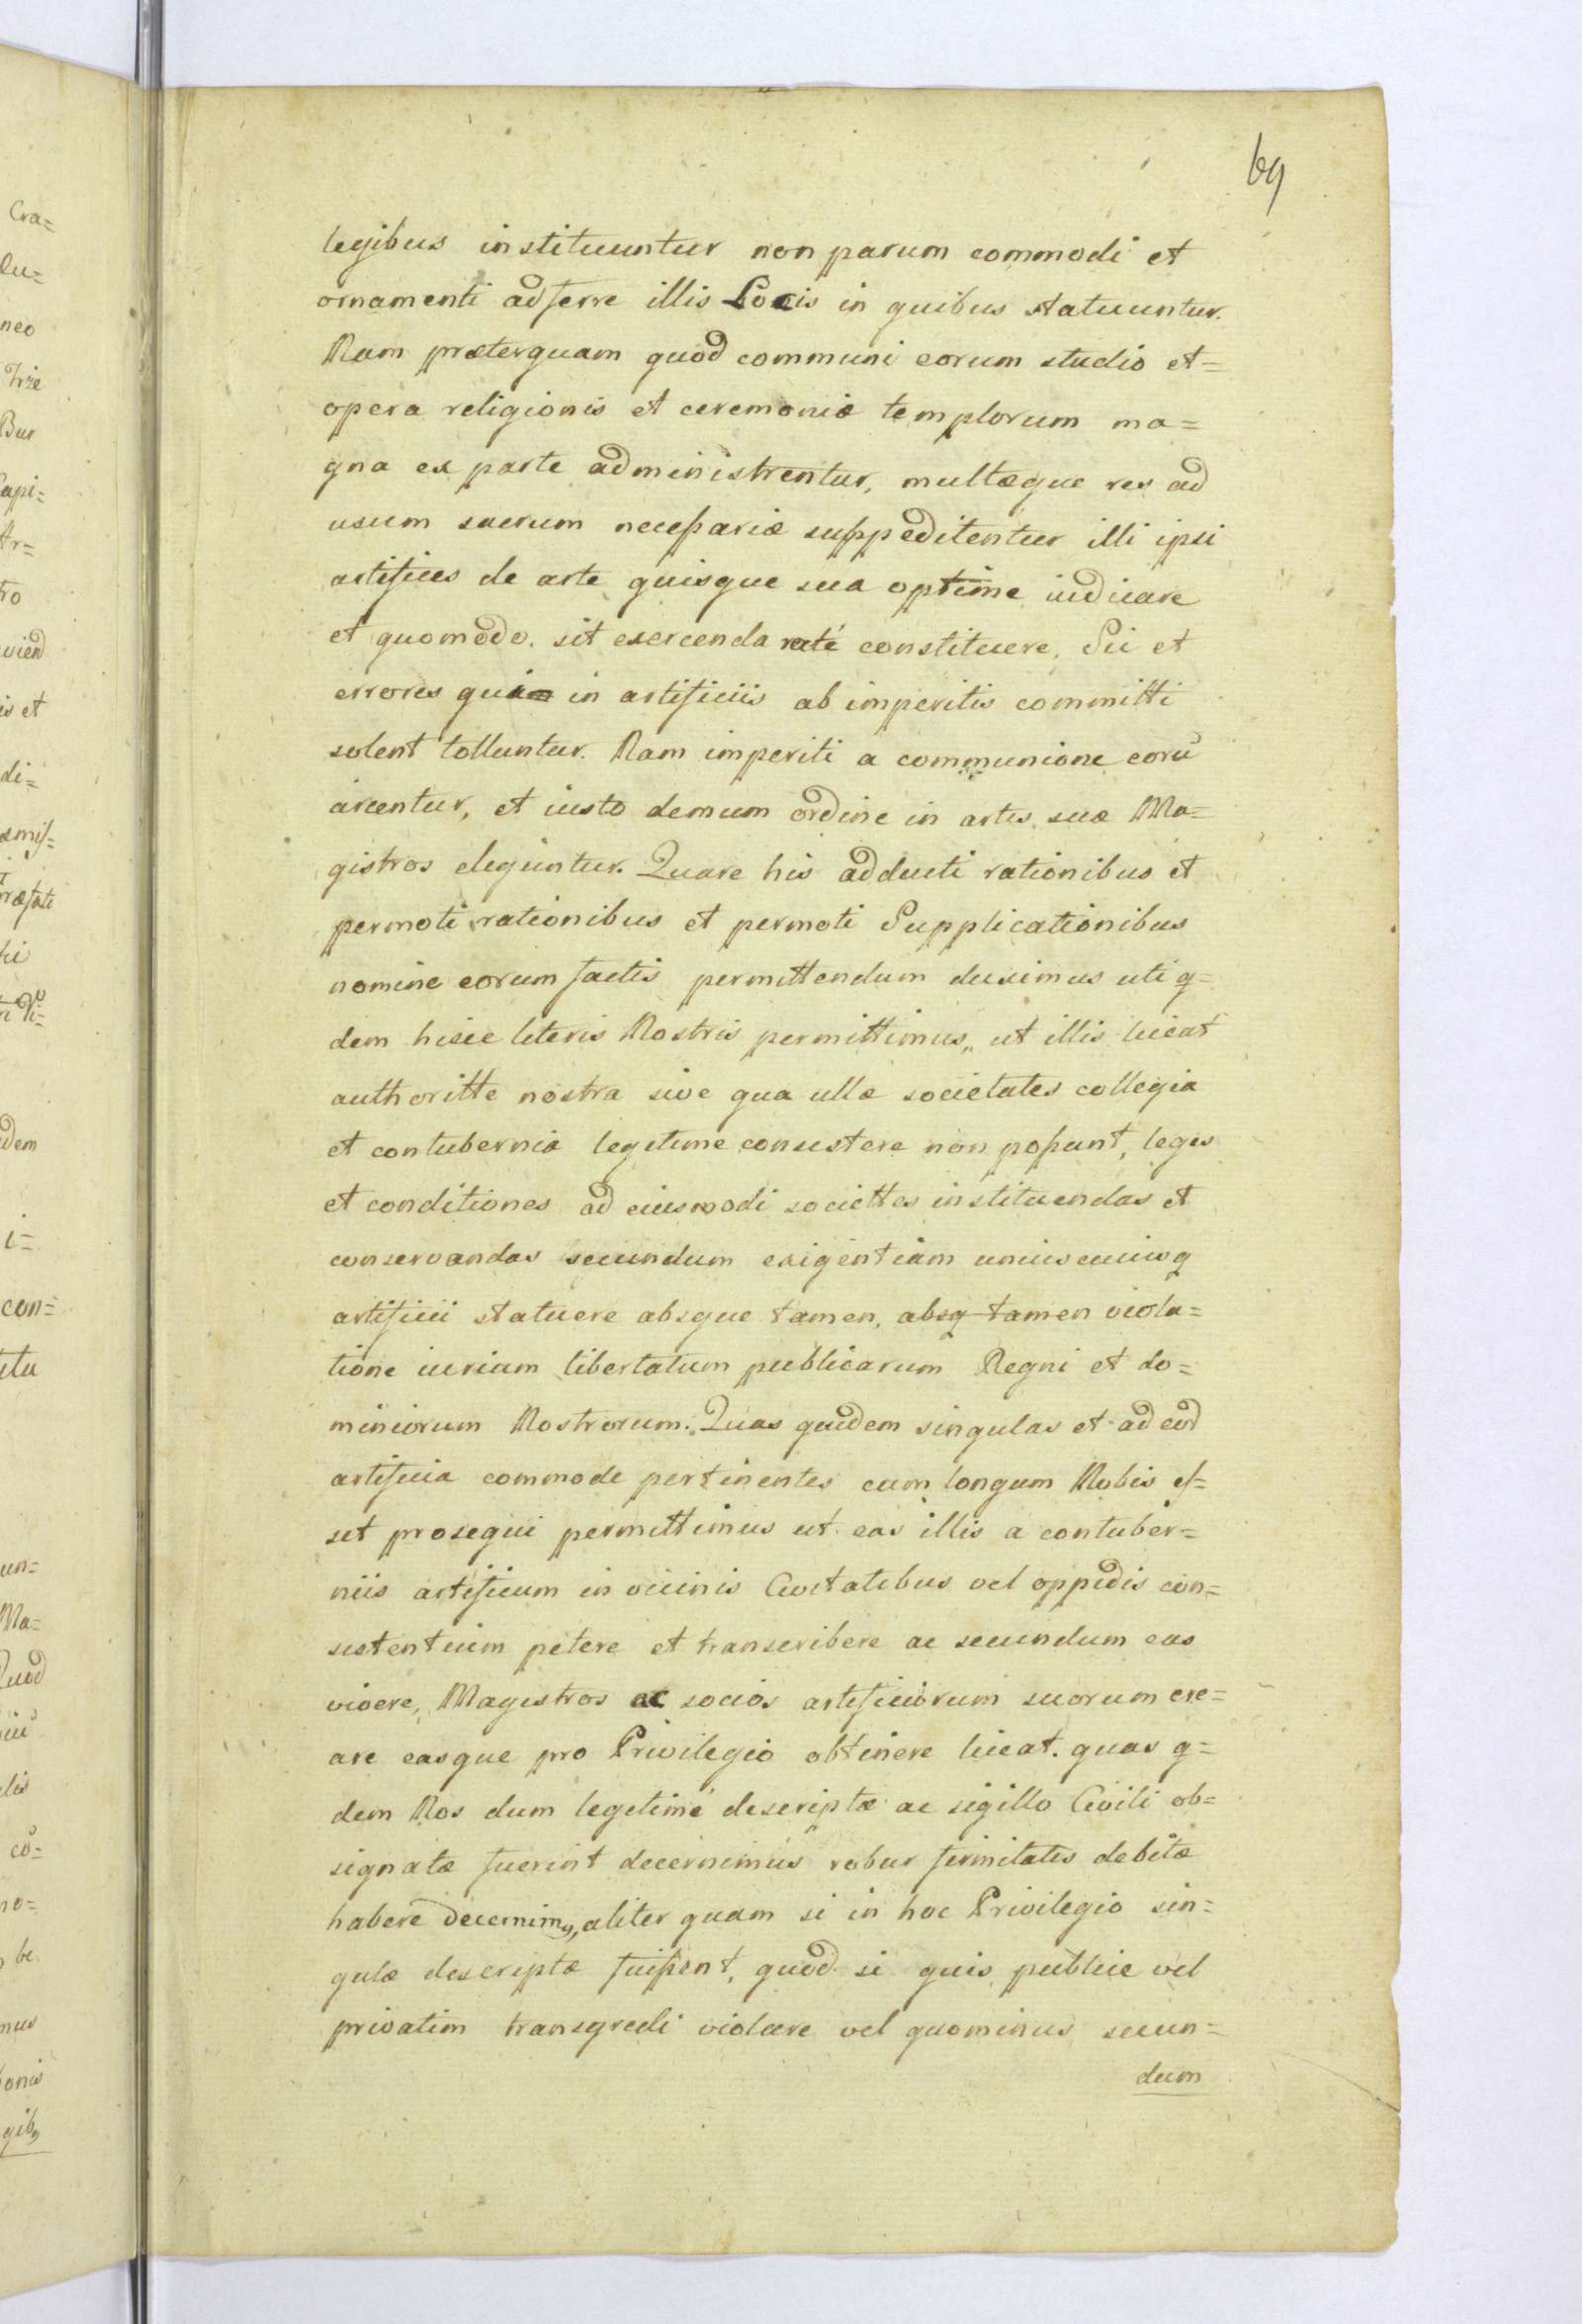 69
legibus instituuntur non parum commodi et
ornamenti adferre illis Locis in quibus statuuntur.
Nam præterquam quod communi eorum studio et=
opera religionis et ceremoniæ templorum ma=
gna ex parte administrentur, multæque res ad
usum sacrum necessariæ suppeditentur illi ipsi
artifices de arte quisque sua optime iudicare
et quomodo sit exercenda recté constituere. Sii et
errores qui in artificiis ab imperitis committi
solent tolluntur. Nam imperiti a communione eorū
arcentur, et iusto demum ordine in artis suæ Ma=
gistros eleguntur. Quare his adducti rationibus et
permoti rationibus et permoti Supplicationibus
nomine eorum factis permittendum duximus uti q=
dem hisce literis Nostris permittimus, ut illis liceat
authoritte nostra sive qua ullæ societates collegia
et contubernia legitime consistere non possunt, leges
et conditiones ad eiusmodi societtes instituendas et
conservandas secundum exigentiam uniuscuiusq
artificii statuere absque tamen, absq tamen viola=
tione iurium libertatum publicarum Regni et do=
miniorum Nostrorum. Quas quidem singulas et ad eod
artificia commode pertinentes cum longum Nobis es=
set prosequi permittimus ut eas illis a contuber=
niis artificum in vicinis Civitatibus vel oppidis con=
sistentium petere et transcribere ac secundum eas
vivere, Magistros ac socios artificiorum suorum cre=
are easque pro Privilegio obtinere liceat. quas q=
dem Nos dum legitimé descriptæ ac sigillo Civili ob=
signatæ fuerint decernimus robur firmitatis debitæ
habere decernimꝰ, aliter quam si in hoc Privilegio sin=
gulæ descriptæ fuissent, quod si quis publice vel
privatim transgredi violare vel quominus secun=
dum